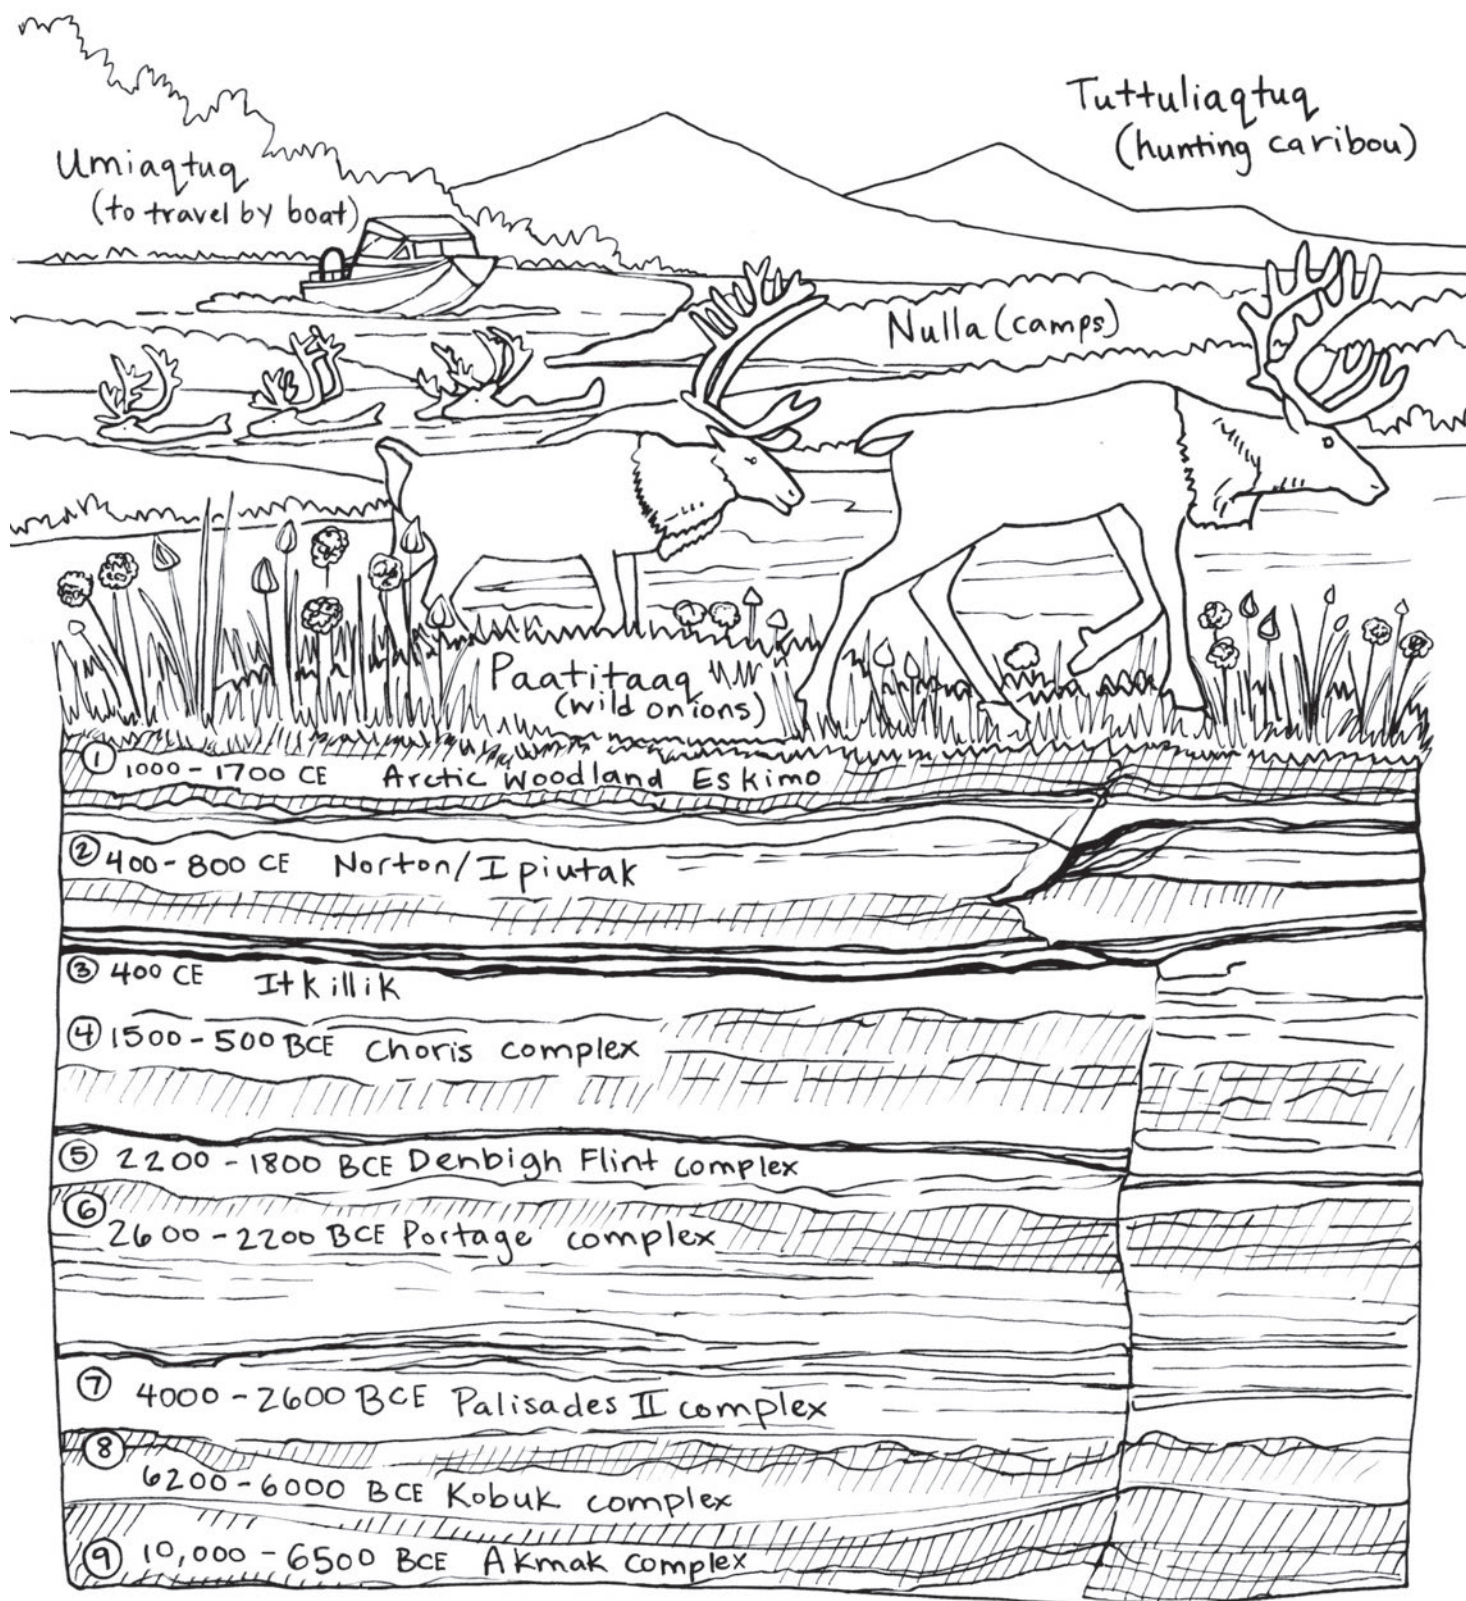 Tuttuliaqtuq
(hunting caribou)
Umiaqtuq
(to travel by boat)
Nulla (camps)
Paatitaaq
(wild onions)
① 1000-1700 CE Arctic Woodland Eskimo
② 400-800 CE Norton/Ipiutak
③ 400 CE Itkillik
④ 1500-500 BCE Choris complex
⑤ 2200-1800 BCE Denbigh Flint complex
⑥ 2600-2200 BCE Portage complex
⑦ 4000-2600 BCE Palisades II complex
⑧ 6200-6000 BCE Kobuk complex
⑨ 10,000-6500 BCE Akmak complex